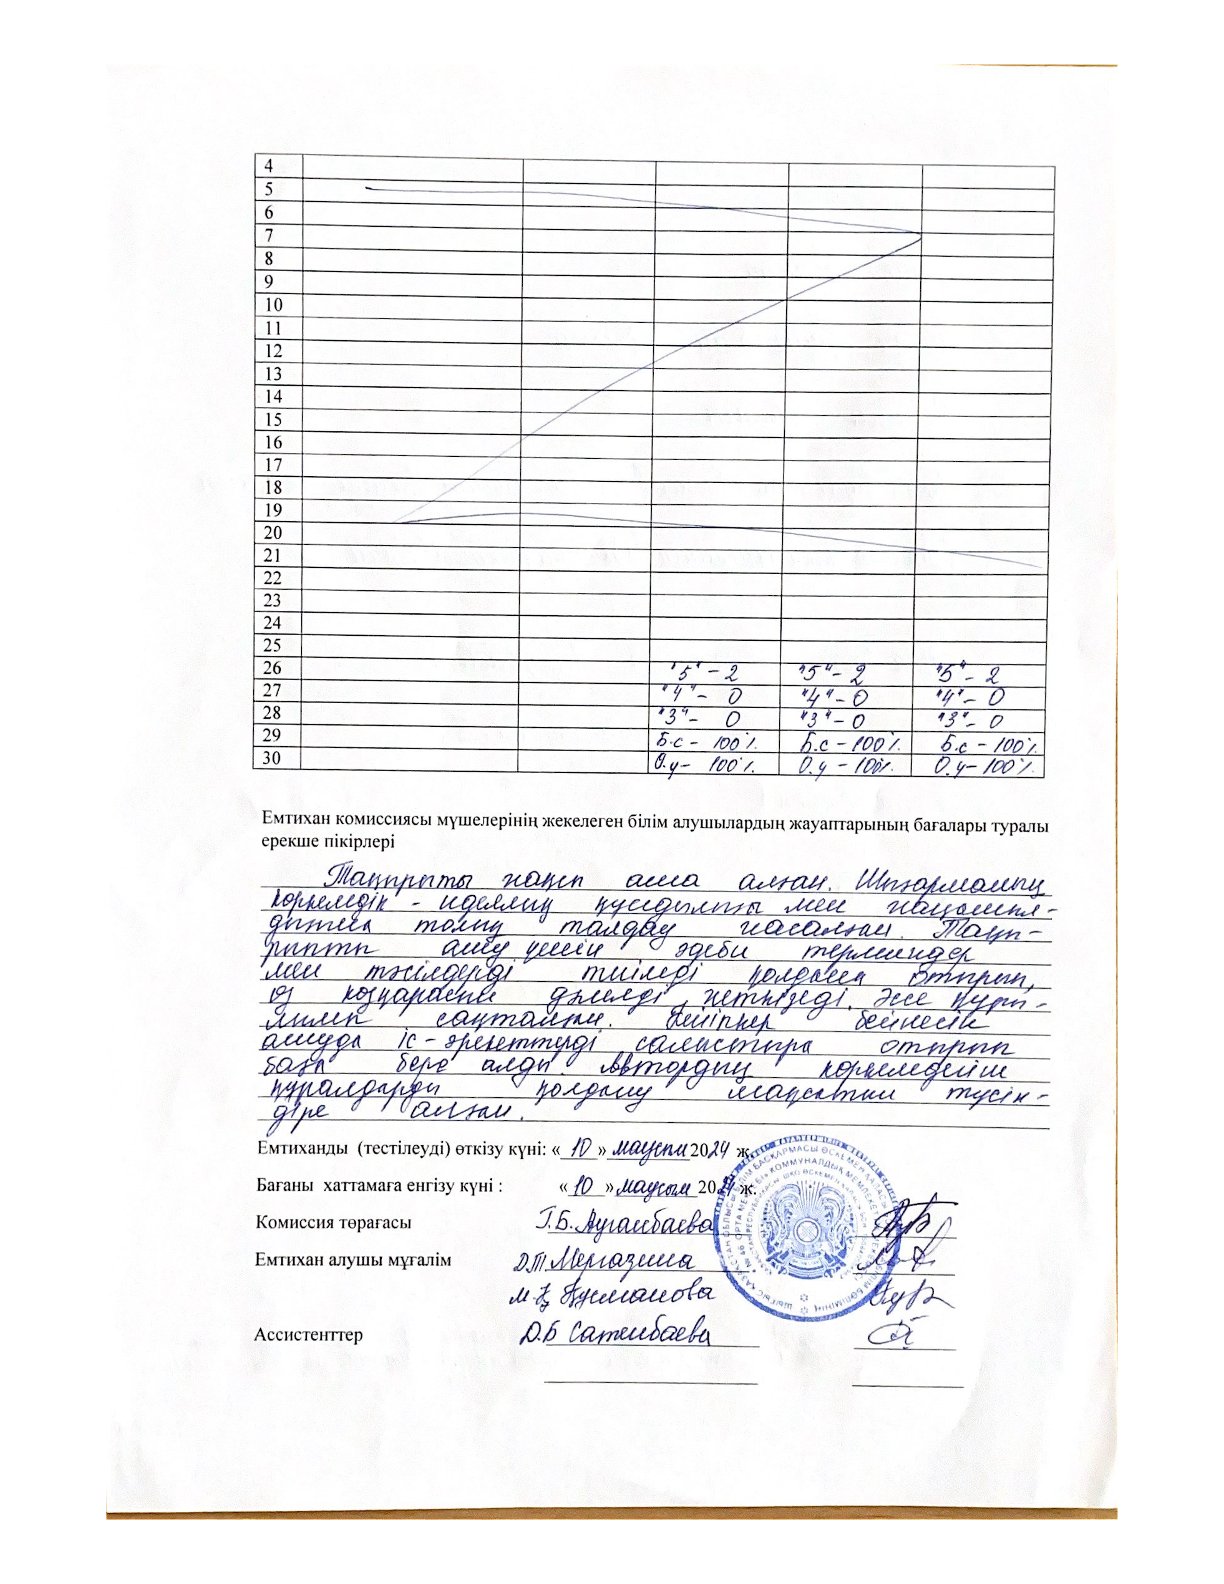 4
5
6
7
8
9
10
11
12
13
14
15
16
17
18
19
20
21
22
23
24
25
26 "5" - 2 "5" - 2 "5" - 2
27 "4" - 0 "4" - 0 "4" - 0
28 "3" - 0 "3" - 0 "3" - 0
29 Б.с - 100% Б.с - 100% Б.с - 100%
30 О.у - 100% О.у - 100% О.у - 100%
Емтихан комиссиясы мүшелерінің жекелеген білім алушылардың жауаптарының бағалары туралы
ерекше пікірлері
Тақырыпты жақсы аша алған. Шығарманың
көркемдік - идеялық құндылығы мен
толық талдау жасалған. Тақы-
рыпты ашу үшін әдеби терминдер
мен тәсілдерді тиімді қолдана отырып,
өз көзқарасын дәлелді жеткізеді. Эссе құры-
лымы сақталған. Кейіпкер бейнесін
ашуда іс-әрекеттерді салыстыра отырып
баға бере алды. Автордың көркемдегіш
құралдарды қолдану мақсатын түсін-
діре алған.
Емтиханды (тестілеуді) өткізу күні: « 10 » маусым 2024 ж.
Бағаны хаттамаға енгізу күні : « 10 » маусым 2024 ж.
Комиссия төрағасы Г.Б. Ауганбаева
Емтихан алушы мұғалім Д.Т Мергазина
М.Қ Құсманова
Ассистенттер Д.Б Сатенбаева